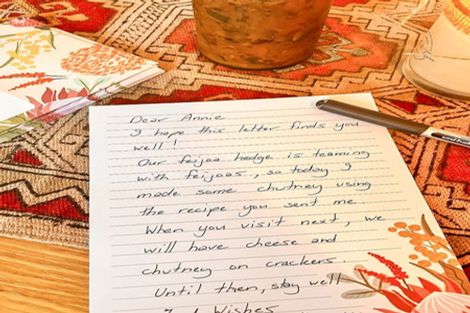 Dear Annie
I hope this letter finds you
well!
Our feijoa hedge is teaming
with feijoas, so today I
made some chutney using
the recipe you sent me.
When you visit next, we
will have cheese and
chutney on crackers.
Until then, stay well
Wishes